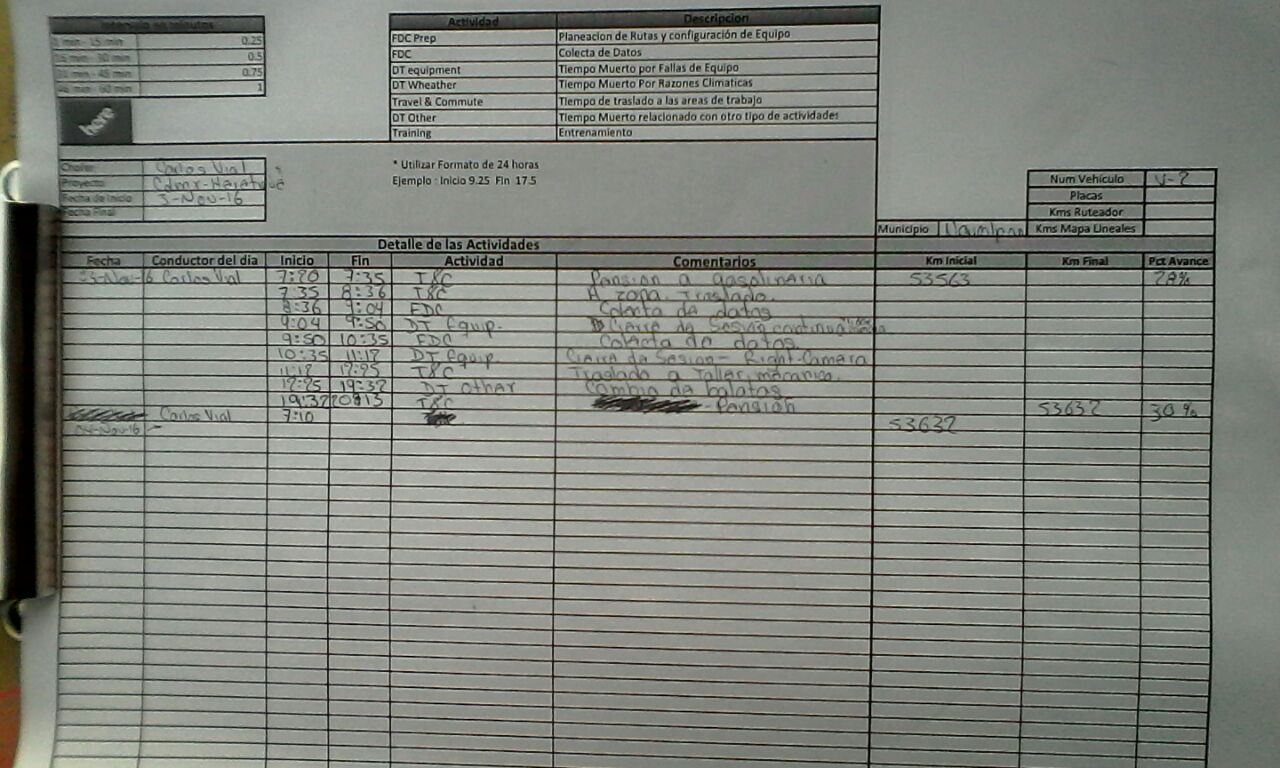 Intervalo en minutos
1 min - 15 min 0.25
16 min - 30 min 0.5
31 min - 45 min 0.75
46 min - 60 min 1
here
Actividad Descripcion
FDC Prep Planeacion de Rutas y configuración de Equipo
FDC Colecta de Datos
DT equipment Tiempo Muerto por Fallas de Equipo
DT Wheather Tiempo Muerto Por Razones Climaticas
Travel & Commute Tiempo de traslado a las areas de trabajo
DT Other Tiempo Muerto relacionado con otro tipo de actividades
Training Entrenamiento
* Utilizar Formato de 24 horas
Ejemplo : Inicio 9.25 Fin 17.5
Chofer Carlos Vial
Proyecto
Fecha de Inicio 3-Nov-16
Fecha Final
Num Vehículo V-2
Placas
Kms Ruteador
Municipio Kms Mapa Lineales
Detalle de las Actividades
Fecha Conductor del día Inicio Fin Actividad Comentarios Km Inicial Km Final Pct Avance
Carlos Vial 7:20 7:35 T&C Pension a gasolineria 53563
7:35 8:36 T&C A zona. Traslado.
8:36 9:04 FDC Colecta de datos
9:04 9:50 DT Equip. Cierre de Sesion continua
9:50 10:35 FDC Colecta de datos.
10:35 11:12 DT Equip Cierre de Sesion - Right-Camara
11:12 12:25 T&C Traslado a Taller mecanico.
12:25 19:32 DT other Cambio de balatas
19:32 20:13 T&C - Pensión 53632 30%
Carlos Vial 7:10 53632
04-Nov-16